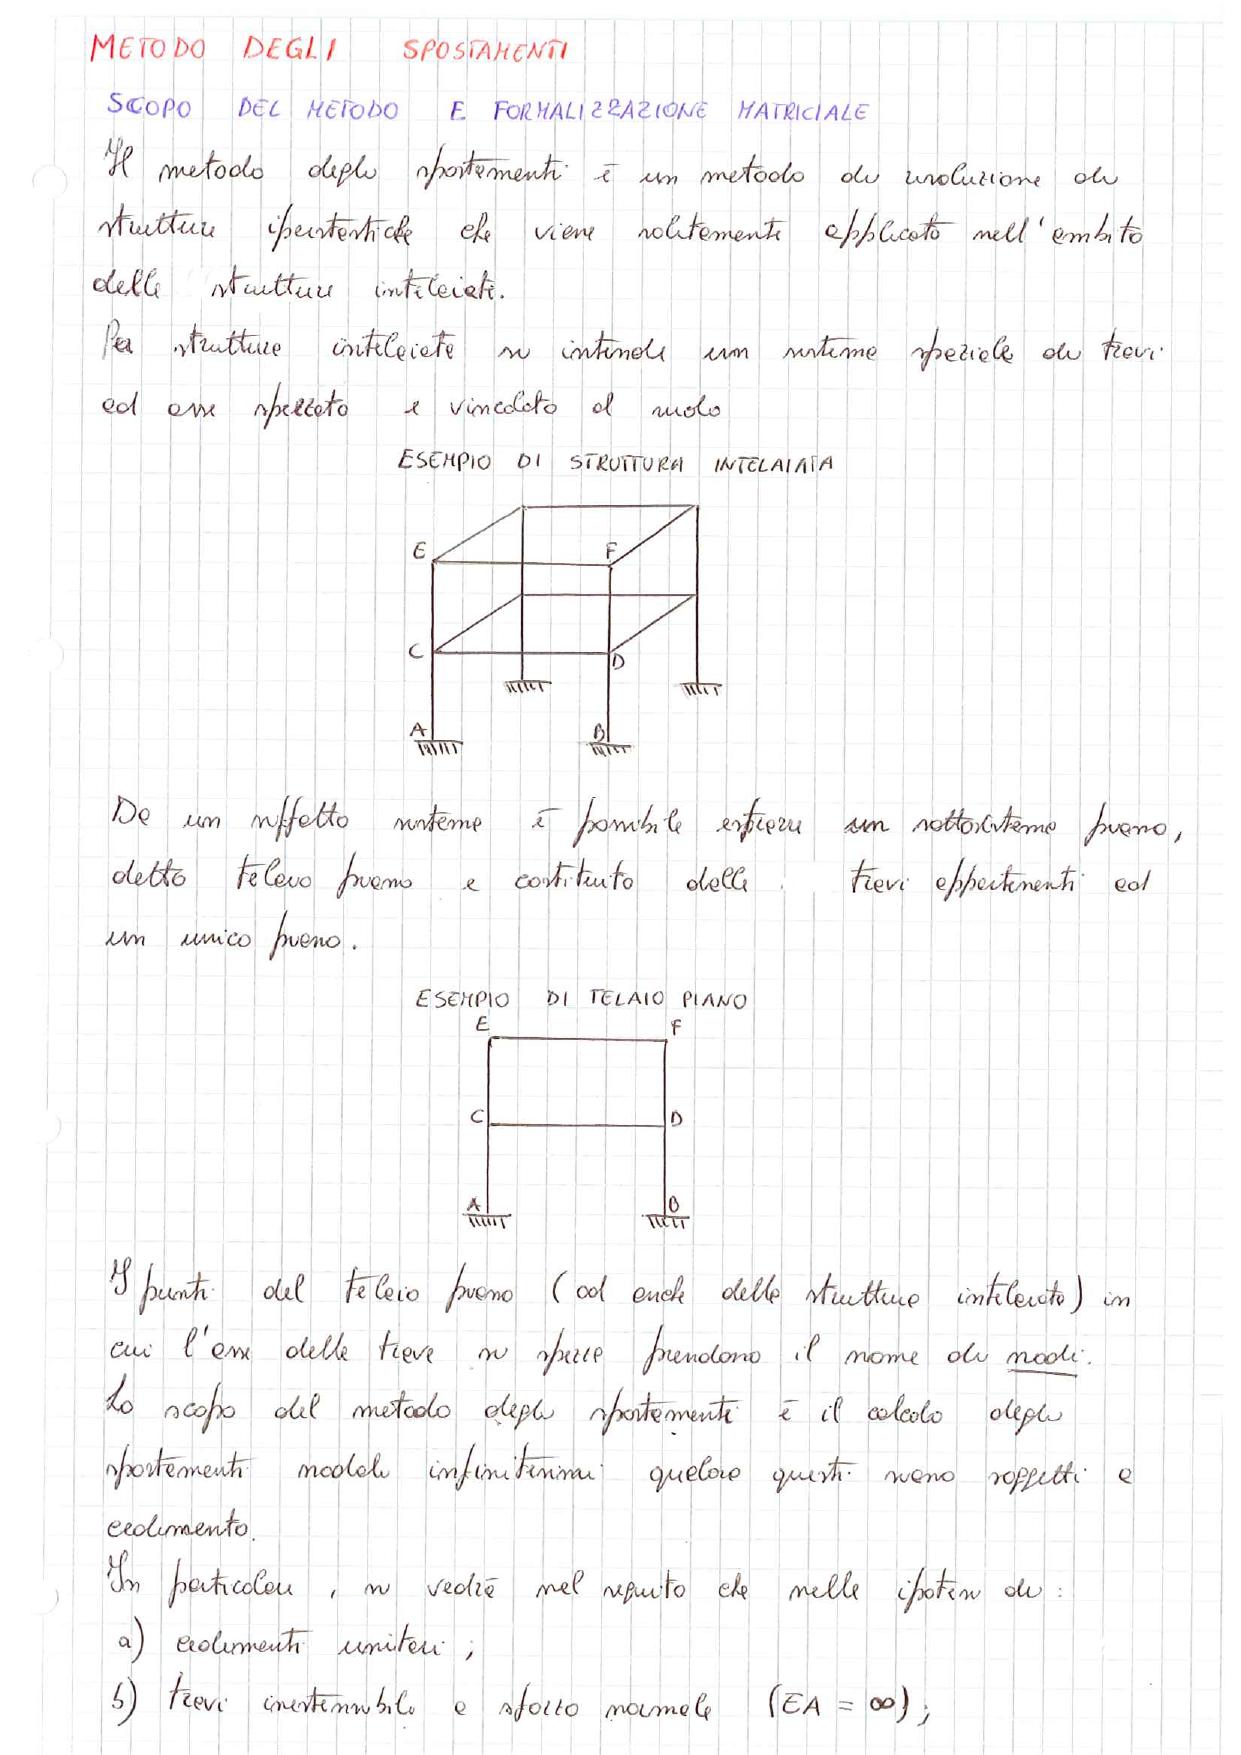 METODO DEGLI SPOSTAMENTI
SCOPO DEL METODO E FORMALIZZAZIONE MATRICIALE
Il metodo degli spostamenti è un metodo di risoluzione di
strutture iperstatiche che viene solitamente applicato nell'ambito
delle strutture intelaiate.
Per struttura intelaiata si intende un sistema speziale di travi
ad asse spezzato e vincolato al suolo
ESEMPIO DI STRUTTURA INTELAIATA
E F
C D
A B
Da un siffatto sistema è possibile estrarre un sottosistema piano,
detto telaio piano e costituito dalle travi appartenenti ad
un unico piano.
ESEMPIO DI TELAIO PIANO
E F
C D
A B
I punti del telaio piano (od anche della struttura intelaiata) in
cui l'asse della trave si spezza prendono il nome di nodi.
Lo scopo del metodo degli spostamenti è il calcolo degli
spostamenti nodali infinitesimi qualora questi siano soggetti a
cedimento.
In particolare, si vedrà nel seguito che nelle ipotesi di:
a) cedimenti unitari;
b) travi inestensibili a sforzo normale (EA = ∞);